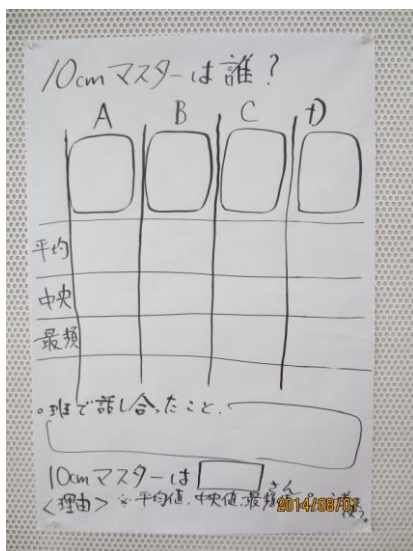 10cmマスターは誰?
A B C D
平均
中央
最頻
。班で話し合ったこと.
10cmマスターは さん
<理由> ※平均値、中央値、最頻値
2014/08/01